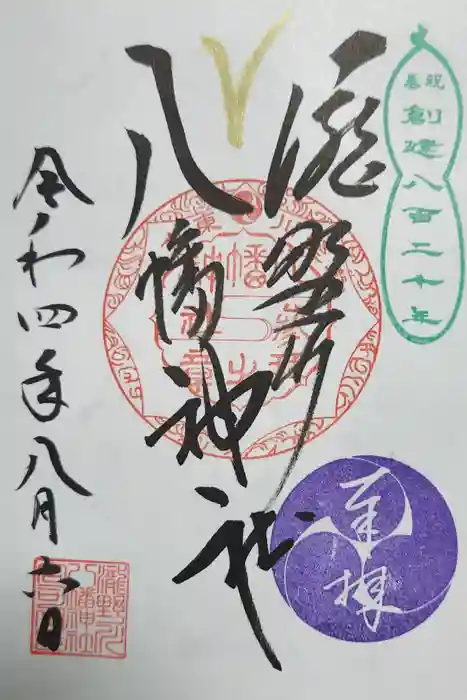 奉祝
創建八百二十年
瀧野川
八幡神社
奉拝
令和四年八月六日